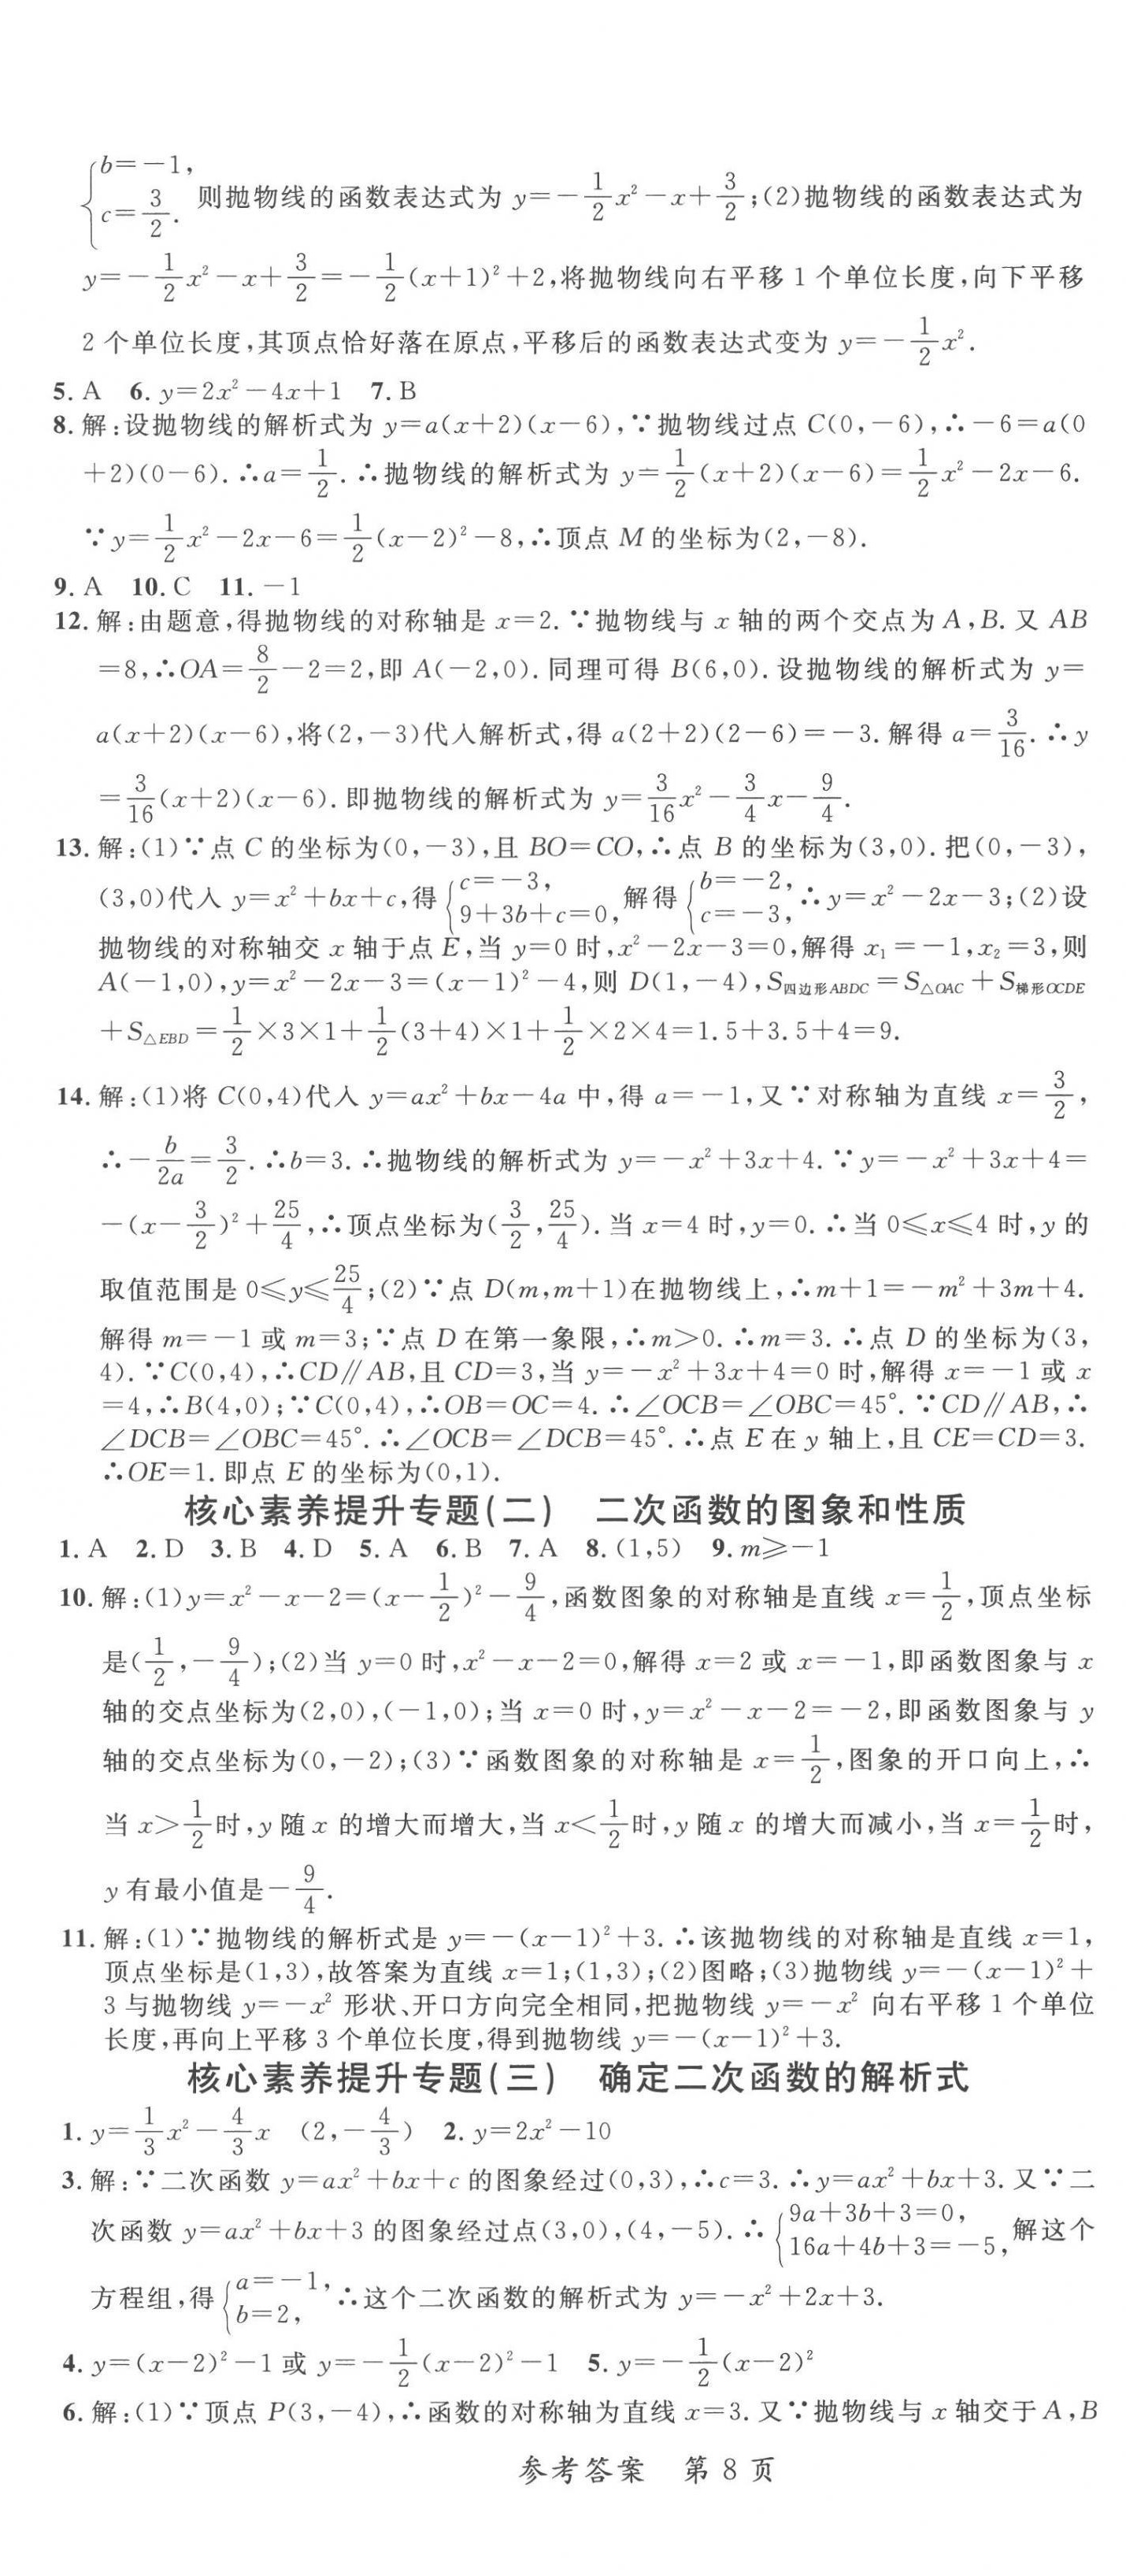 {b=-1, c=3/2. 则抛物线的函数表达式为 y=-1/2x²-x+3/2;(2)抛物线的函数表达式为
y=-1/2x²-x+3/2=-1/2(x+1)²+2,将抛物线向右平移 1 个单位长度,向下平移
2 个单位长度,其顶点恰好落在原点,平移后的函数表达式变为 y=-1/2x².
5. A 6. y=2x²-4x+1 7. B
8. 解:设抛物线的解析式为 y=a(x+2)(x-6),∵抛物线过点 C(0,-6),∴-6=a(0
+2)(0-6).∴a=1/2.∴抛物线的解析式为 y=1/2(x+2)(x-6)=1/2x²-2x-6.
∵y=1/2x²-2x-6=1/2(x-2)²-8,∴顶点 M 的坐标为(2,-8).
9. A 10. C 11. -1
12. 解:由题意,得抛物线的对称轴是 x=2.∵抛物线与 x 轴的两个交点为 A,B. 又 AB
=8,∴OA=8/2-2=2,即 A(-2,0). 同理可得 B(6,0). 设抛物线的解析式为 y=
a(x+2)(x-6),将(2,-3)代入解析式,得 a(2+2)(2-6)=-3. 解得 a=3/16.∴y
=3/16(x+2)(x-6). 即抛物线的解析式为 y=3/16x²-3/4x-9/4.
13. 解:(1)∵点 C 的坐标为(0,-3),且 BO=CO,∴点 B 的坐标为(3,0). 把(0,-3),
(3,0)代入 y=x²+bx+c,得{c=-3, 9+3b+c=0, 解得{b=-2, c=-3, ∴y=x²-2x-3;(2)设
抛物线的对称轴交 x 轴于点 E,当 y=0 时,x²-2x-3=0,解得 x₁=-1,x₂=3,则
A(-1,0),y=x²-2x-3=(x-1)²-4,则 D(1,-4),S四边形ABDC=S△OAC+S梯形OCDE
+S△EBD=1/2×3×1+1/2(3+4)×1+1/2×2×4=1.5+3.5+4=9.
14. 解:(1)将 C(0,4)代入 y=ax²+bx-4a 中,得 a=-1,又∵对称轴为直线 x=3/2,
∴-b/2a=3/2.∴b=3.∴抛物线的解析式为 y=-x²+3x+4.∵y=-x²+3x+4=
-(x-3/2)²+25/4,∴顶点坐标为(3/2,25/4). 当 x=4 时,y=0.∴当 0≤x≤4 时,y 的
取值范围是 0≤y≤25/4;(2)∵点 D(m,m+1)在抛物线上,∴m+1=-m²+3m+4.
解得 m=-1 或 m=3;∵点 D 在第一象限,∴m>0.∴m=3.∴点 D 的坐标为(3,
4).∵C(0,4),∴CD∥AB,且 CD=3,当 y=-x²+3x+4=0 时,解得 x=-1 或 x
=4,∴B(4,0);∵C(0,4),∴OB=OC=4.∴∠OCB=∠OBC=45°.∵CD∥AB,∴
∠DCB=∠OBC=45°.∴∠OCB=∠DCB=45°.∴点 E 在 y 轴上,且 CE=CD=3.
∴OE=1. 即点 E 的坐标为(0,1).
核心素养提升专题(二) 二次函数的图象和性质
1. A 2. D 3. B 4. D 5. A 6. B 7. A 8. (1,5) 9. m≥-1
10. 解:(1)y=x²-x-2=(x-1/2)²-9/4,函数图象的对称轴是直线 x=1/2,顶点坐标
是(1/2,-9/4);(2)当 y=0 时,x²-x-2=0,解得 x=2 或 x=-1,即函数图象与 x
轴的交点坐标为(2,0),(-1,0);当 x=0 时,y=x²-x-2=-2,即函数图象与 y
轴的交点坐标为(0,-2);(3)∵函数图象的对称轴是 x=1/2,图象的开口向上,∴
当 x>1/2时,y 随 x 的增大而增大,当 x<1/2时,y 随 x 的增大而减小,当 x=1/2时,
y 有最小值是-9/4.
11. 解:(1)∵抛物线的解析式是 y=-(x-1)²+3.∴该抛物线的对称轴是直线 x=1,
顶点坐标是(1,3),故答案为直线 x=1;(1,3);(2)图略;(3)抛物线 y=-(x-1)²+
3 与抛物线 y=-x² 形状、开口方向完全相同,把抛物线 y=-x² 向右平移 1 个单位
长度,再向上平移 3 个单位长度,得到抛物线 y=-(x-1)²+3.
核心素养提升专题(三) 确定二次函数的解析式
1. y=1/3x²-4/3x (2,-4/3) 2. y=2x²-10
3. 解:∵二次函数 y=ax²+bx+c 的图象经过(0,3),∴c=3.∴y=ax²+bx+3. 又∵二
次函数 y=ax²+bx+3 的图象经过点(3,0),(4,-5).∴{9a+3b+3=0, 16a+4b+3=-5, 解这个
方程组,得{a=-1, b=2, ∴这个二次函数的解析式为 y=-x²+2x+3.
4. y=(x-2)²-1 或 y=-1/2(x-2)²-1 5. y=-1/2(x-2)²
6. 解:(1)∵顶点 P(3,-4),∴函数的对称轴为直线 x=3. 又∵抛物线与 x 轴交于 A,B
参考答案 第 8 页